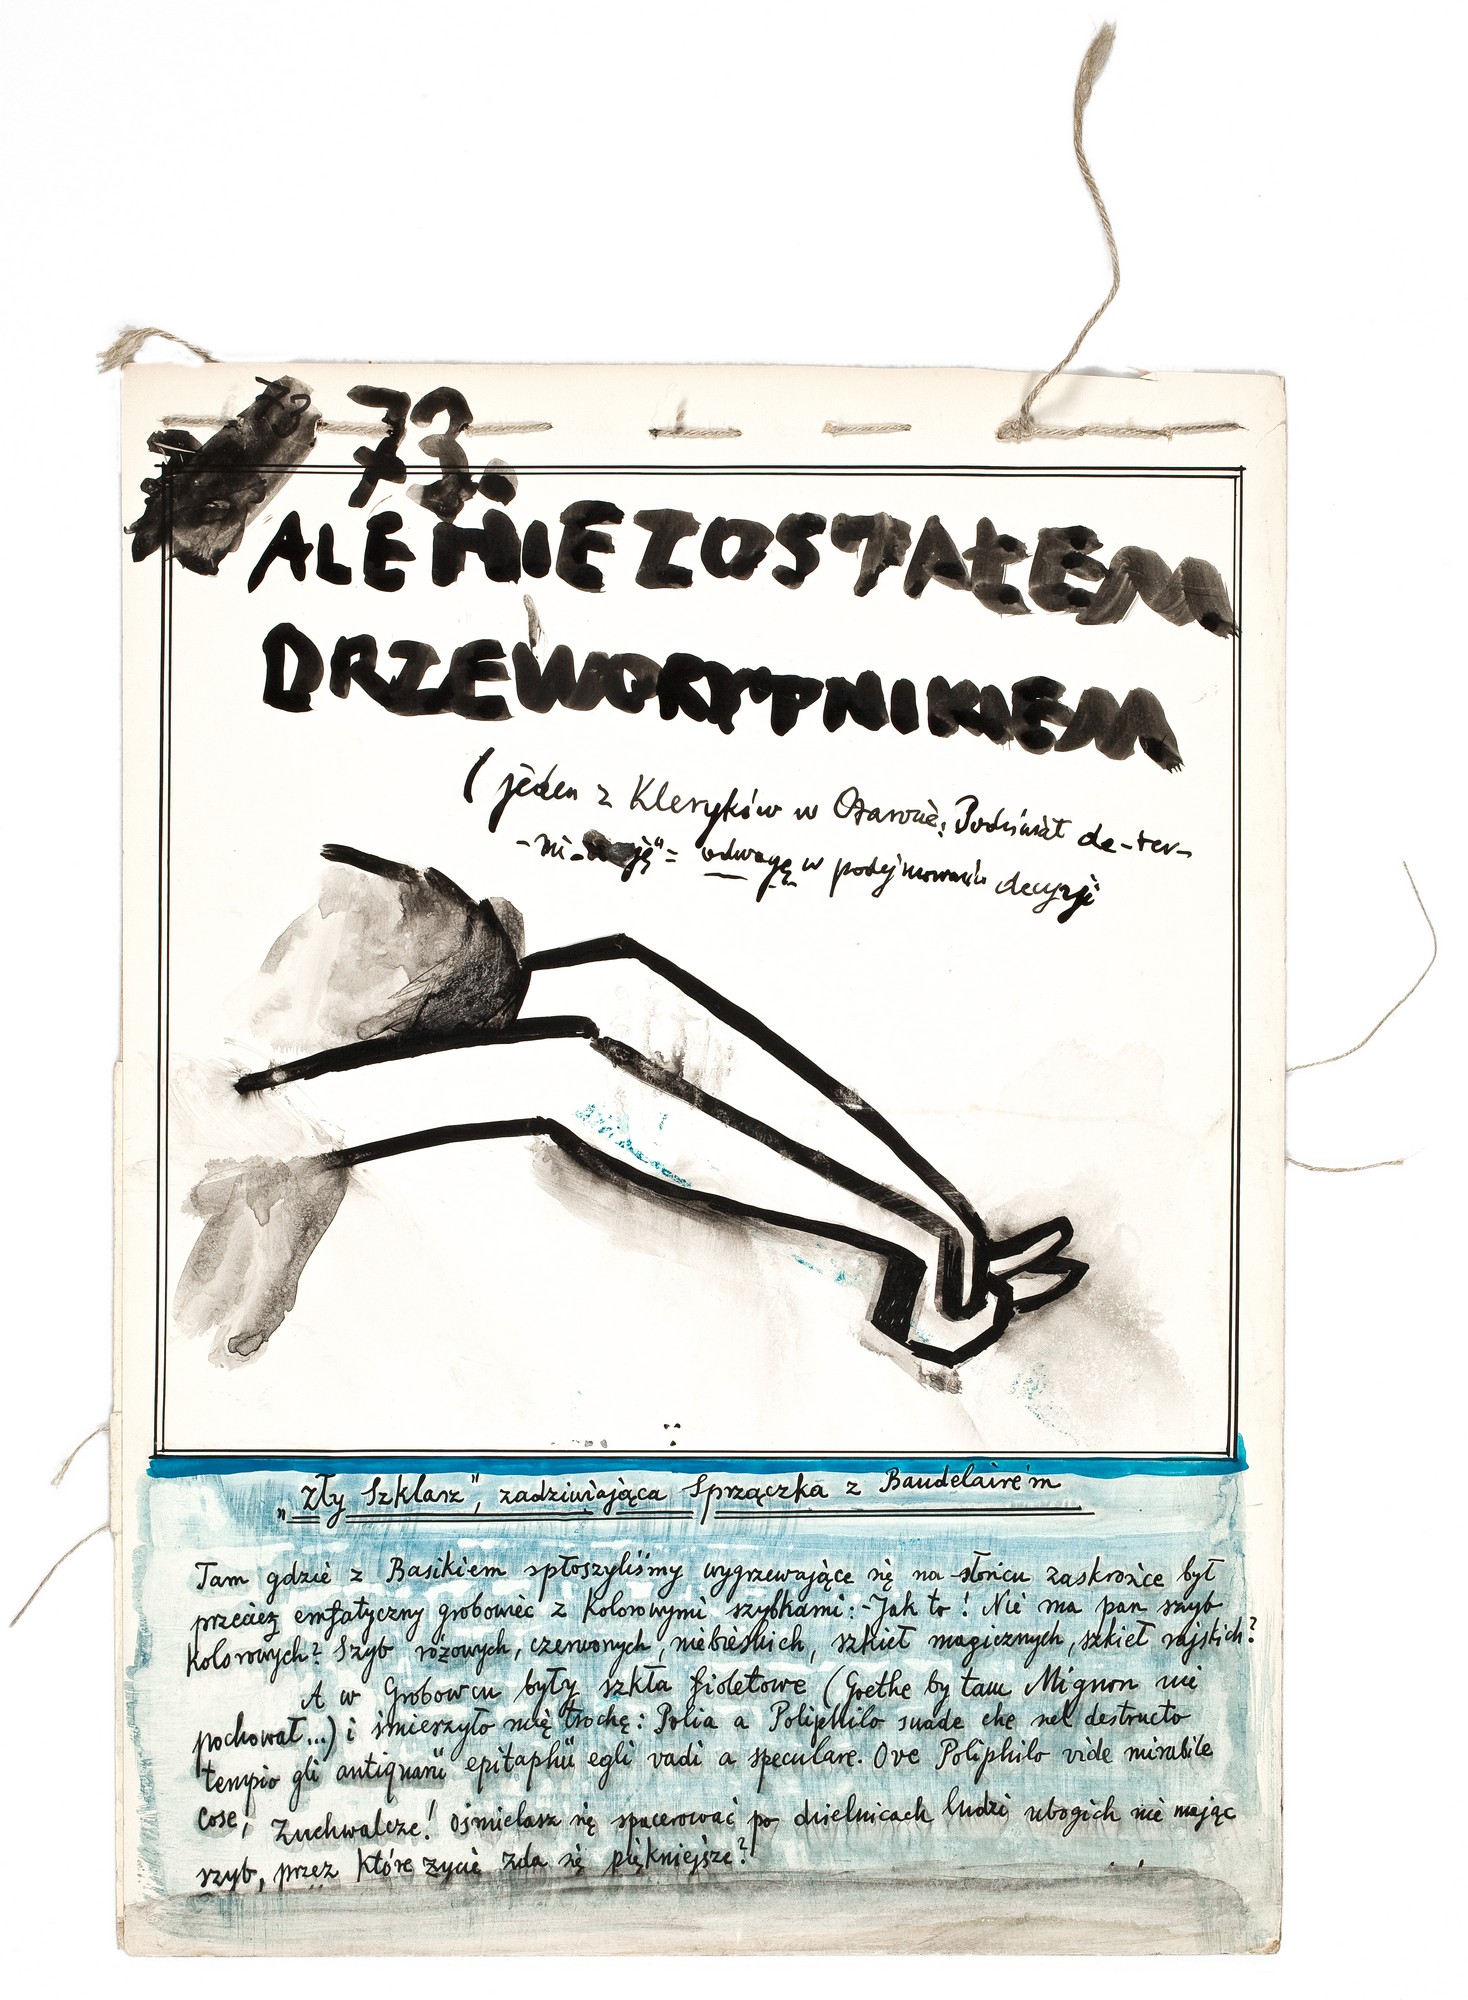 73
73.
ALE NIE ZOSTAŁEM
DRZEWORYTNIKIEM
( jeden z Kleryków w Ołtarzewie: Podziwiał de-ter-
odwagę w podejmowaniu decyzji
„Zły Szklarz", zadziwiająca Sprzączka z Baudelaire'm
Tam gdzie z Basikiem spłoszyliśmy wygrzewające się na słońcu zaskrońce był
przecież emfatyczny grobowiec z kolorowymi szybkami: - Jak to! Nie ma pan szyb
kolorowych? Szyb różowych, czerwonych, niebieskich, szkieł magicznych, szkieł rajskich?
A w Grobowcu były szkła fioletowe (Goethe by tam Mignon nie
pochował...) i śmierzyło mię trochę: Polia a Poliphilo suade che nel destructo
tempio gli antiquarii epitaphii egli vadi a speculare. Ove Poliphilo vide mirabile
cose, Zuchwalcze! ośmielasz się spacerować po dzielnicach ludzi ubogich nie mając
szyb, przez które życie zda się piękniejsze?